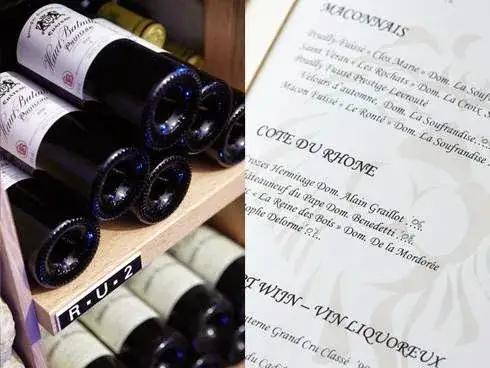 Haut Batailley
PAUILLAC
Haut Batailley
R·U·2
MACONNAIS
Pouilly Fuissé « Clos Marie » Dom. La Souf
Saint Veran « Les Rochats » Dom. La Croix
Pouilly Fuissé Prestige Levrouté
Velours d'automne, Dom. La Soufrandise
Macon Fuissé « Le Ronté » Dom. La Soufrandise
COTE DU RHONE
rozes Hermitage Dom. Alain Graillot
hâteauneuf du Pape Dom. Benedetti
« La Reine des Bois » Dom. De la Mordorée
ophe Delorme
RT WIJN – VIN LIQUOREUX
uterne Grand Cru Classé